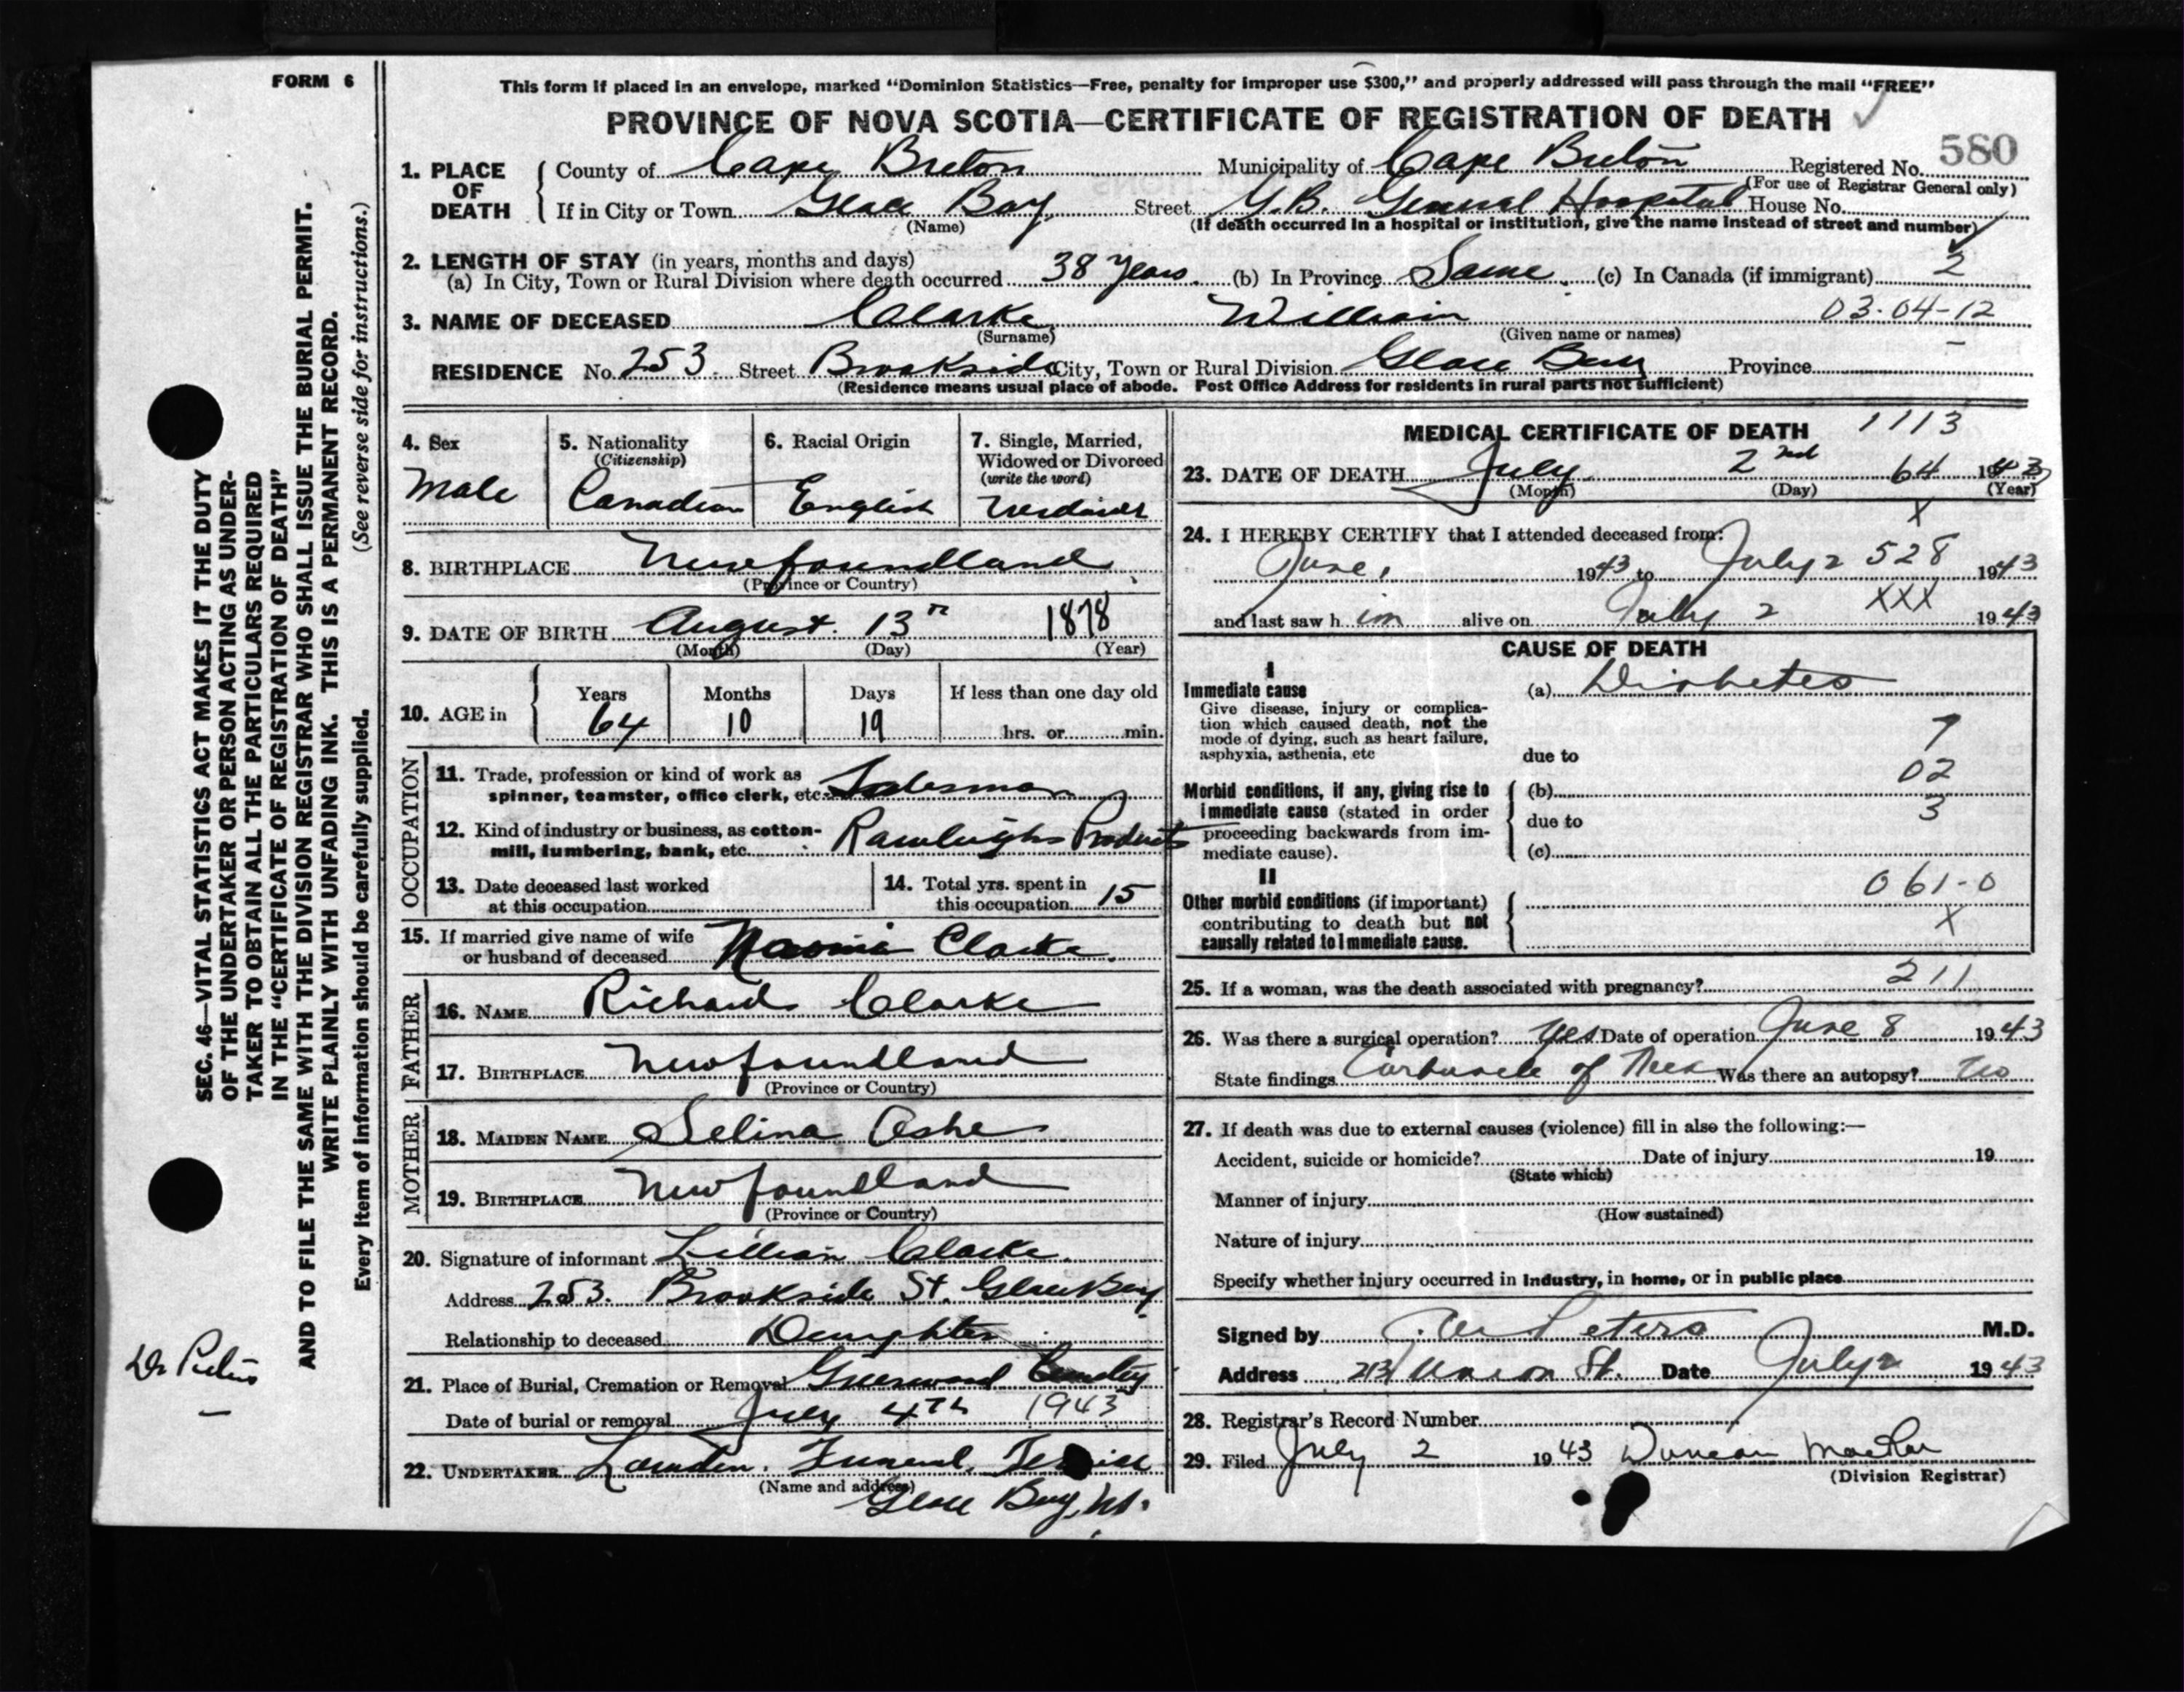 FORM 6
This form if placed in an envelope, marked “Dominion Statistics—Free, penalty for improper use $300,” and properly addressed will pass through the mail “FREE”
PROVINCE OF NOVA SCOTIA—CERTIFICATE OF REGISTRATION OF DEATH
580
1. PLACE OF DEATH County of Cape Breton Municipality of Cape Breton Registered No.
(For use of Registrar General only)
If in City or Town Glace Bay Street G.B. General Hospital House No.
(Name) (If death occurred in a hospital or institution, give the name instead of street and number)
2. LENGTH OF STAY (in years, months and days)
(a) In City, Town or Rural Division where death occurred 38 years (b) In Province Same (c) In Canada (if immigrant) 2
3. NAME OF DECEASED Clarke William 03-04-12
(Surname) (Given name or names)
RESIDENCE No. 253 Street Brookside City, Town or Rural Division Glace Bay Province
(Residence means usual place of abode. Post Office Address for residents in rural parts not sufficient)
4. Sex
Male
5. Nationality
(Citizenship)
Canadian
6. Racial Origin
English
7. Single, Married,
Widowed or Divorced
(write the word)
8. BIRTHPLACE Newfoundland
(Province or Country)
9. DATE OF BIRTH August 13th 1878
(Month) (Day) (Year)
10. AGE in Years Months Days If less than one day old
64 10 19 hrs. or min.
OCCUPATION
11. Trade, profession or kind of work as
spinner, teamster, office clerk, etc. Salesman
12. Kind of industry or business, as cotton-
mill, lumbering, bank, etc. Rawleighs Products
13. Date deceased last worked
at this occupation
14. Total yrs. spent in
this occupation 15
15. If married give name of wife
or husband of deceased Naomi Clarke
FATHER
16. NAME Richard Clarke
17. BIRTHPLACE Newfoundland
(Province or Country)
MOTHER
18. MAIDEN NAME Selina Ashe
19. BIRTHPLACE Newfoundland
(Province or Country)
20. Signature of informant Lillian Clarke
Address 253 Brookside St. Glace Bay
Relationship to deceased Daughter
21. Place of Burial, Cremation or Removal Greenwood Cemetery
Date of burial or removal July 4th 1943
22. UNDERTAKER Funeral Service
(Name and address)
Glace Bay, N.S.
MEDICAL CERTIFICATE OF DEATH 1113
23. DATE OF DEATH July 2nd 64 1943
(Month) (Day) (Year)
X
24. I HEREBY CERTIFY that I attended deceased from:
June, 1943 to July 2 528 1943
XXX
and last saw him alive on July 2 1943
CAUSE OF DEATH
I
Immediate cause
Give disease, injury or complica-
tion which caused death, not the
mode of dying, such as heart failure,
asphyxia, asthenia, etc
(a) Diabetes
due to
02
Morbid conditions, if any, giving rise to
immediate cause (stated in order
proceeding backwards from im-
mediate cause).
(b)
due to 3
(c)
II
Other morbid conditions (if important)
contributing to death but not
causally related to immediate cause.
061-0
X
25. If a woman, was the death associated with pregnancy? 211
26. Was there a surgical operation? Yes Date of operation June 8 1943
State findings Carbuncle of Neck Was there an autopsy? No
27. If death was due to external causes (violence) fill in also the following:—
Accident, suicide or homicide? Date of injury 19
(State which)
Manner of injury
(How sustained)
Nature of injury
Specify whether injury occurred in industry, in home, or in public place
Signed by Peters M.D.
Address 213 Union St. Date July 2 1943
28. Registrar's Record Number
29. Filed July 2 1943 Duncan
(Division Registrar)
SEC. 46—VITAL STATISTICS ACT MAKES IT THE DUTY
OF THE UNDERTAKER OR PERSON ACTING AS UNDER-
TAKER TO OBTAIN ALL THE PARTICULARS REQUIRED
IN THE “CERTIFICATE OF REGISTRATION OF DEATH”
AND TO FILE THE SAME WITH THE DIVISION REGISTRAR WHO SHALL ISSUE THE BURIAL PERMIT.
WRITE PLAINLY WITH UNFADING INK. THIS IS A PERMANENT RECORD.
Every item of information should be carefully supplied. (See reverse side for instructions.)
Dr Peters